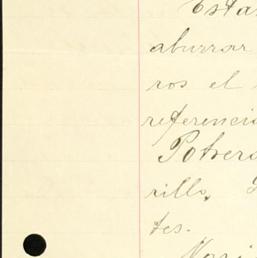 Esta
aburrar
ros el
referenci
Potrer
rillo,
tes.